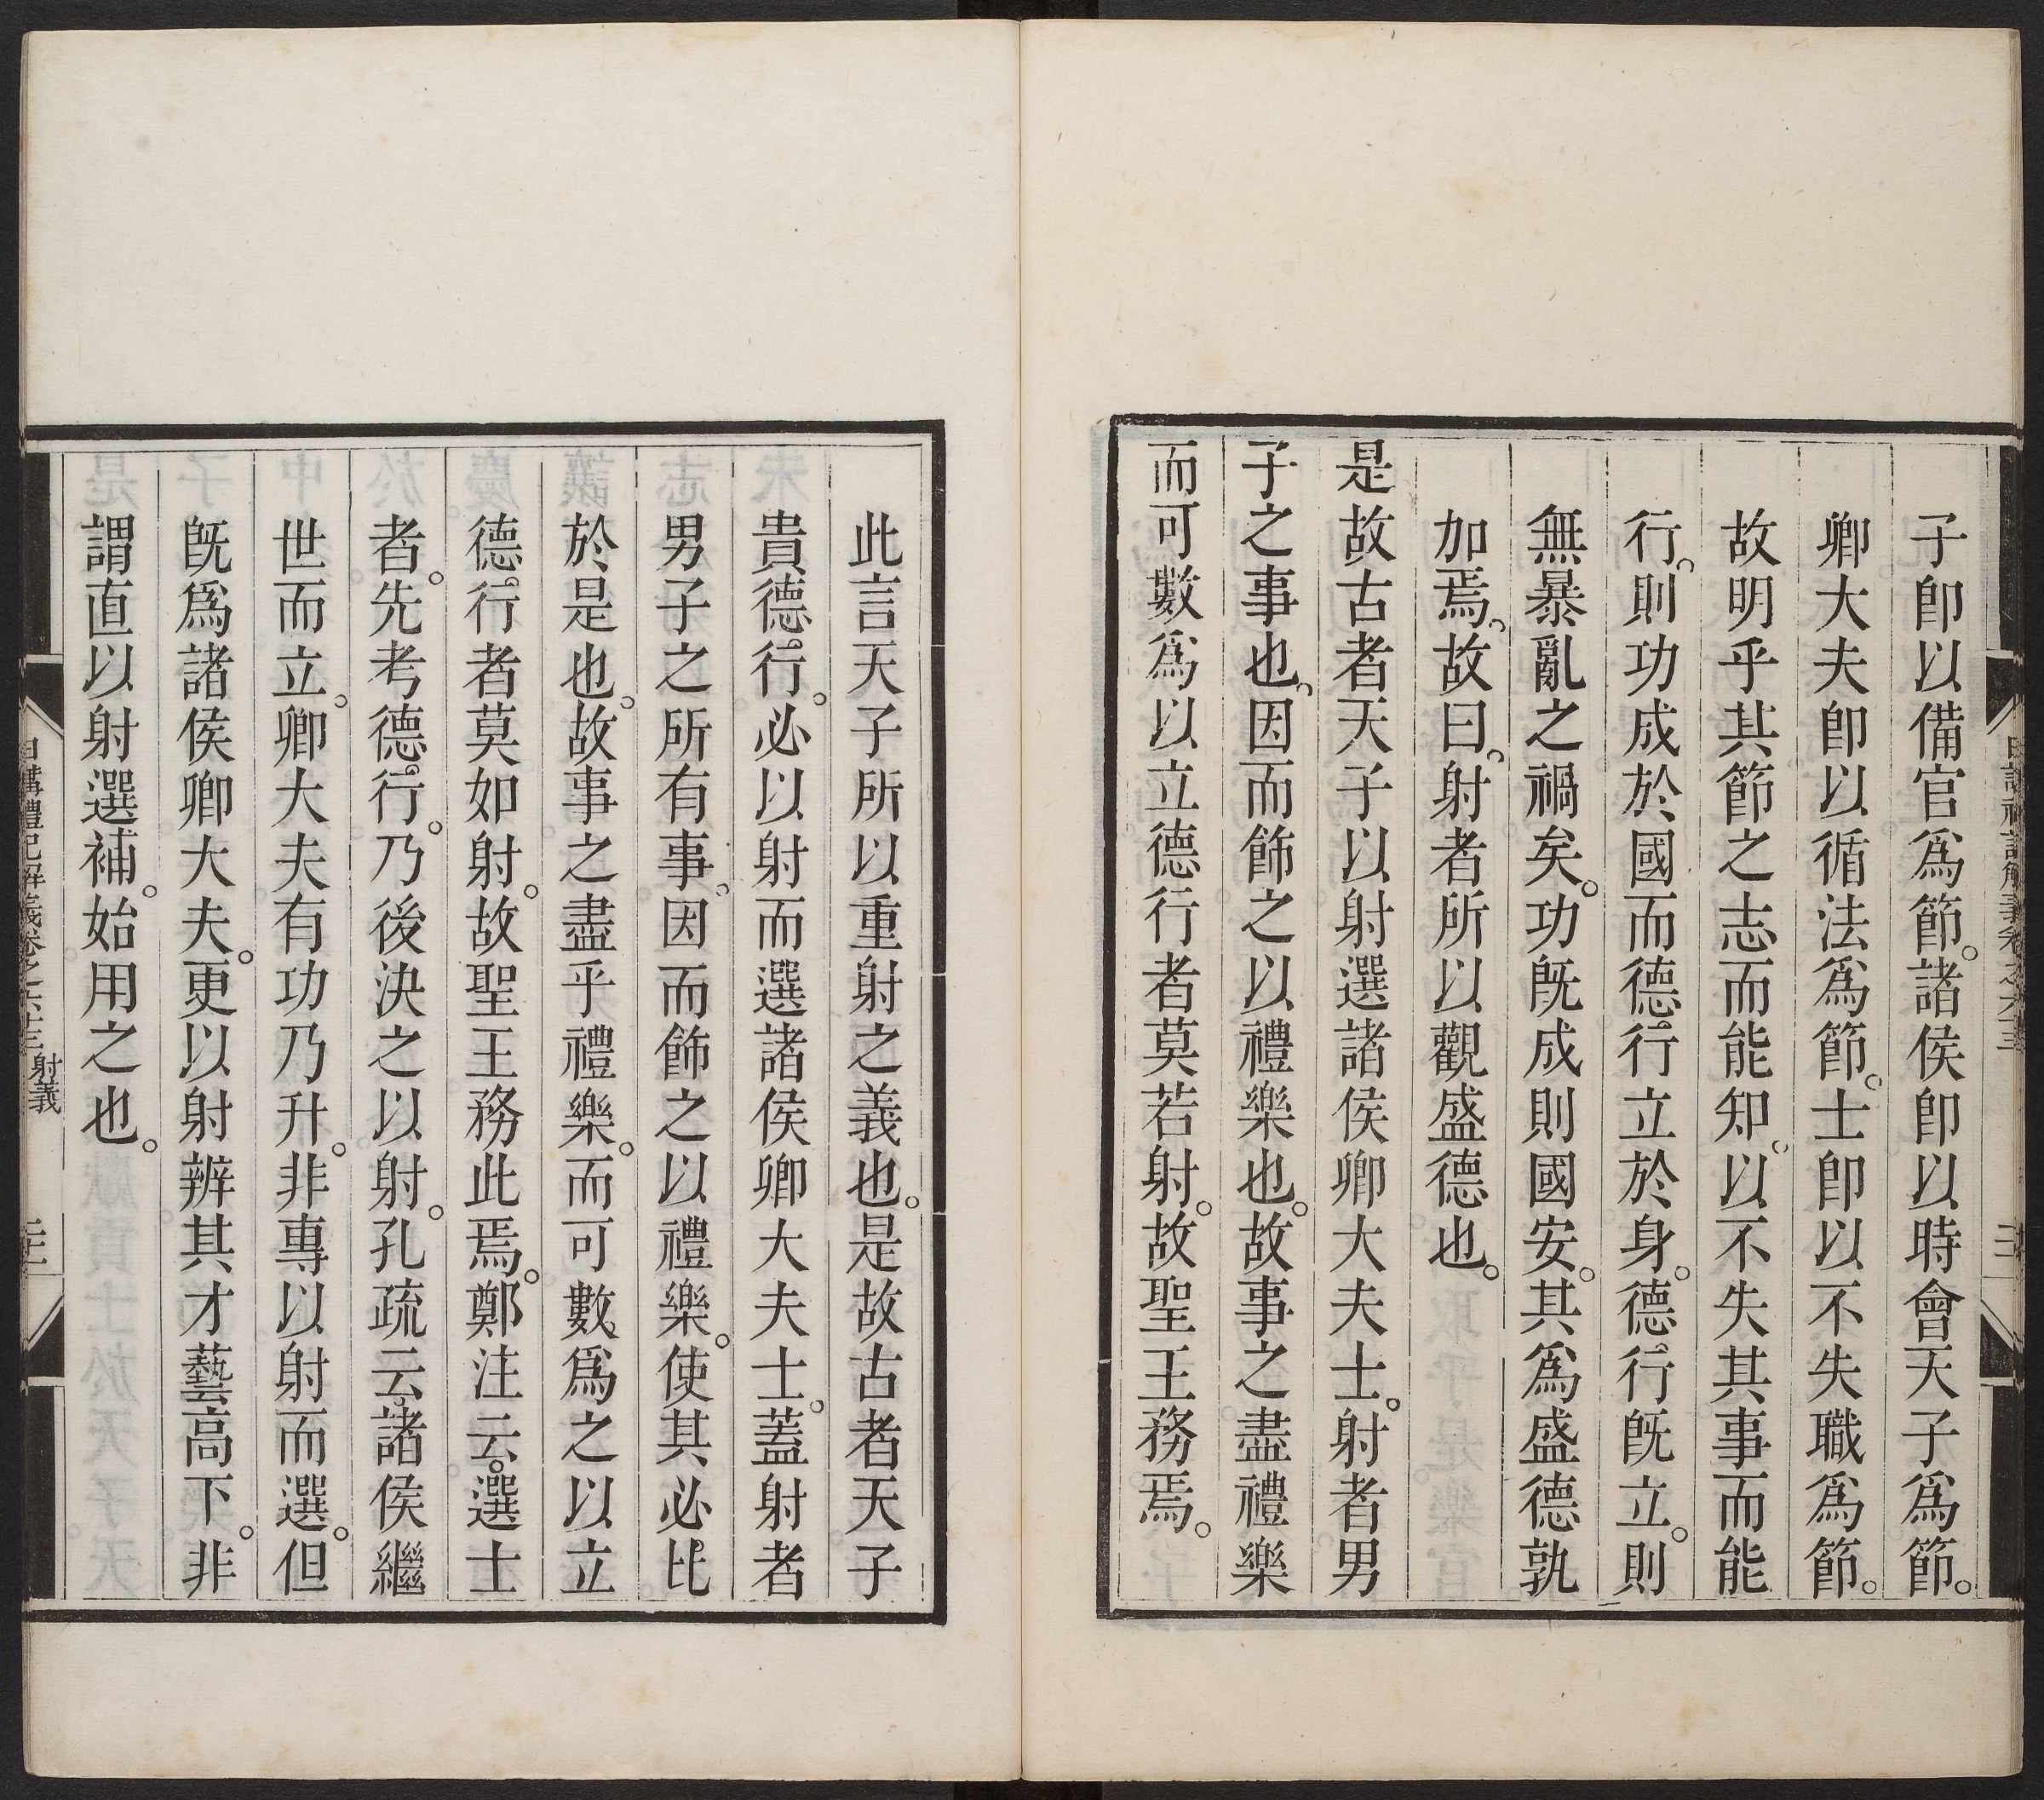 子卽以備官爲節。諸侯卽以時會天子爲節。
卿大夫卽以循法爲節。士卽以不失職爲節。
故明乎其節之志而能知。以不失其事而能
行。則功成於國而德行立於身。德行旣立。則
無暴亂之禍矣。功旣成則國安。其爲盛德孰
加焉。故曰。射者所以觀盛德也。
是故古者天子以射選諸侯卿大夫士。射者男
子之事也。因而飾之以禮樂也。故事之盡禮樂
而可數爲以立德行者莫若射。故聖王務焉。
此言天子所以重射之義也。是故古者天子
貴德行。必以射而選諸侯卿大夫士。蓋射者
男子之所有事。因而飾之以禮樂。使其必比
於是也。故事之盡乎禮樂。而可數爲之以立
德行者莫如射。故聖王務此焉。鄭注云。選士
者。先考德行。乃後決之以射。孔疏云。諸侯繼
世而立。卿大夫有功乃升。非專以射而選。但
旣爲諸侯卿大夫。更以射辨其才藝高下。非
謂直以射選補。始用之也。
日講禮記解義卷之六十三 射義